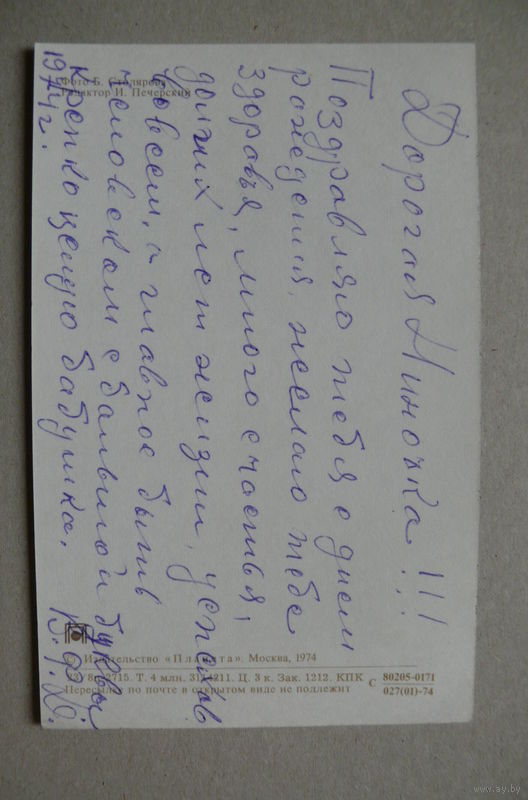 Дорогая Ниночка!!!
Поздравляю тебя с днем
рождения, желаю тебе
здоровья, много счастья,
долгих лет жизни, успехов
во всем, а главное быть
человеком с большой буквы
Крепко целую бабушка.
1974 г.
Фото Б. Столярова
Редактор И. Печерский
Издательство «Планета». Москва, 1974
Т. 4 млн. Ц. 3 к. Зак. 1212. КПК
Пересылке по почте в открытом виде не подлежит
С 80205-0171
027(01)-74
www.ay.by